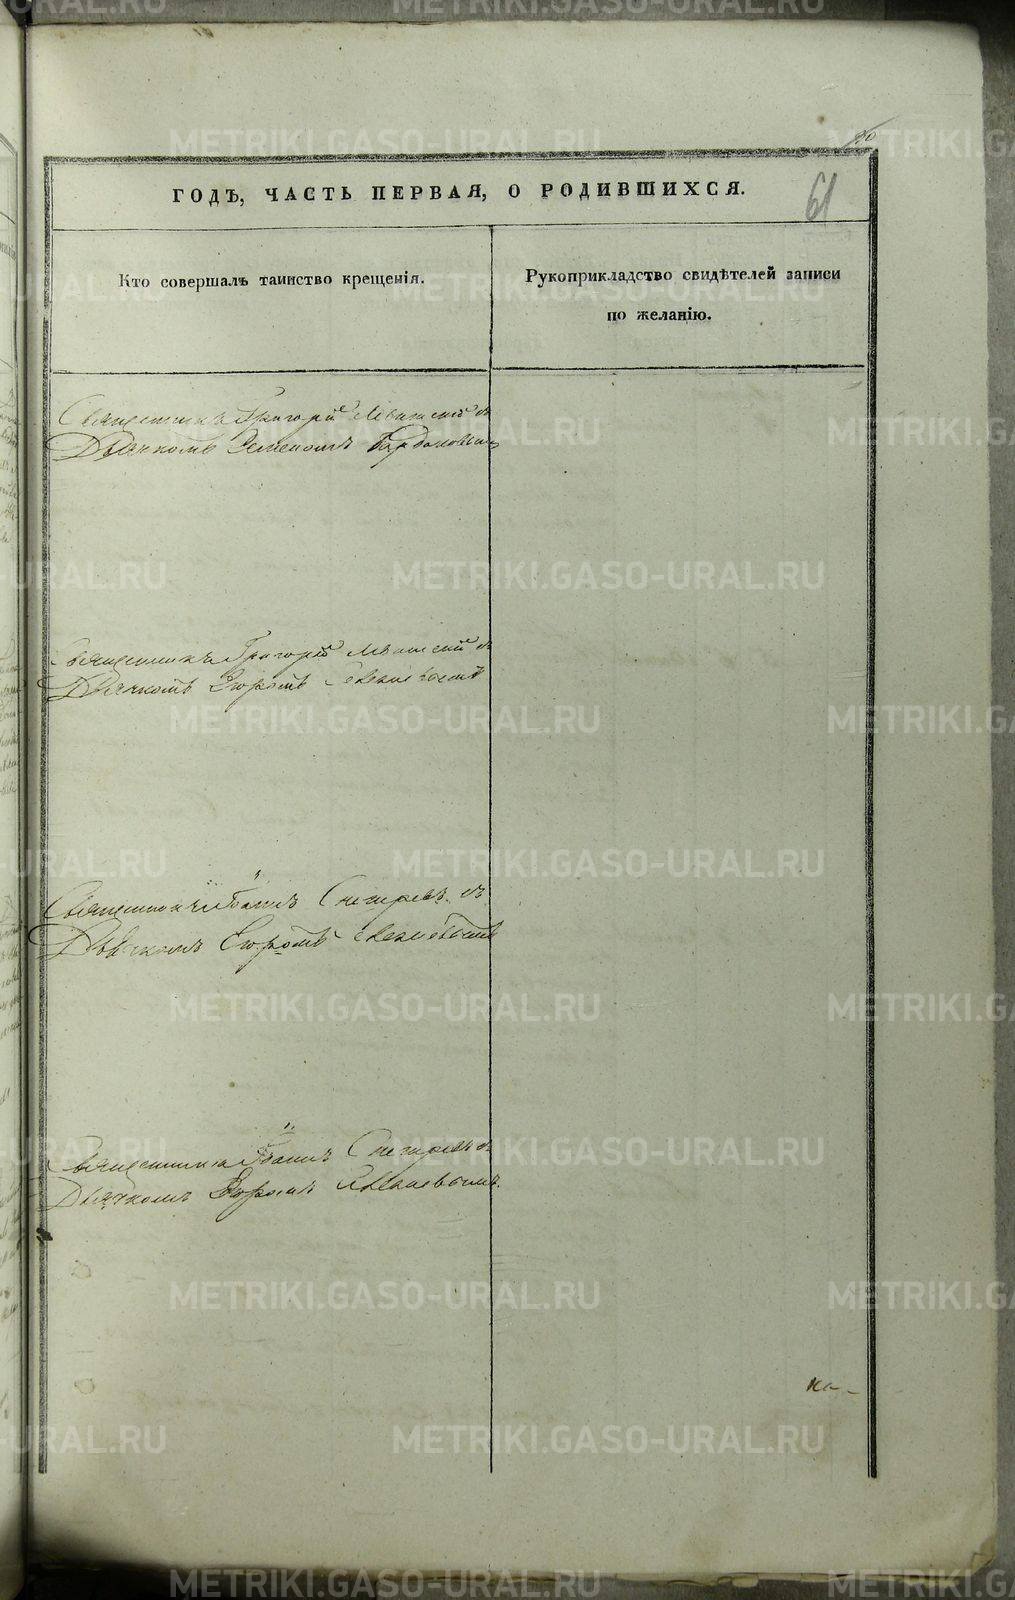 61
ГОДЪ, ЧАСТЬ ПЕРВАЯ, О РОДИВШИХСЯ.
Кто совершалъ таинство крещенія.
Рукоприкладство свидѣтелей записи
по желанію.
Священникъ Григорій съ
Дьячкомъ Семеномъ
Священникъ Григорій съ
Дьячкомъ Егоромъ
Священникъ Іоаннъ Снегиревъ съ
Дьячкомъ Егоромъ
Священникъ Іоаннъ Снегиревъ съ
Дьячкомъ Егоромъ
на-
METRIKI.GASO-URAL.RU